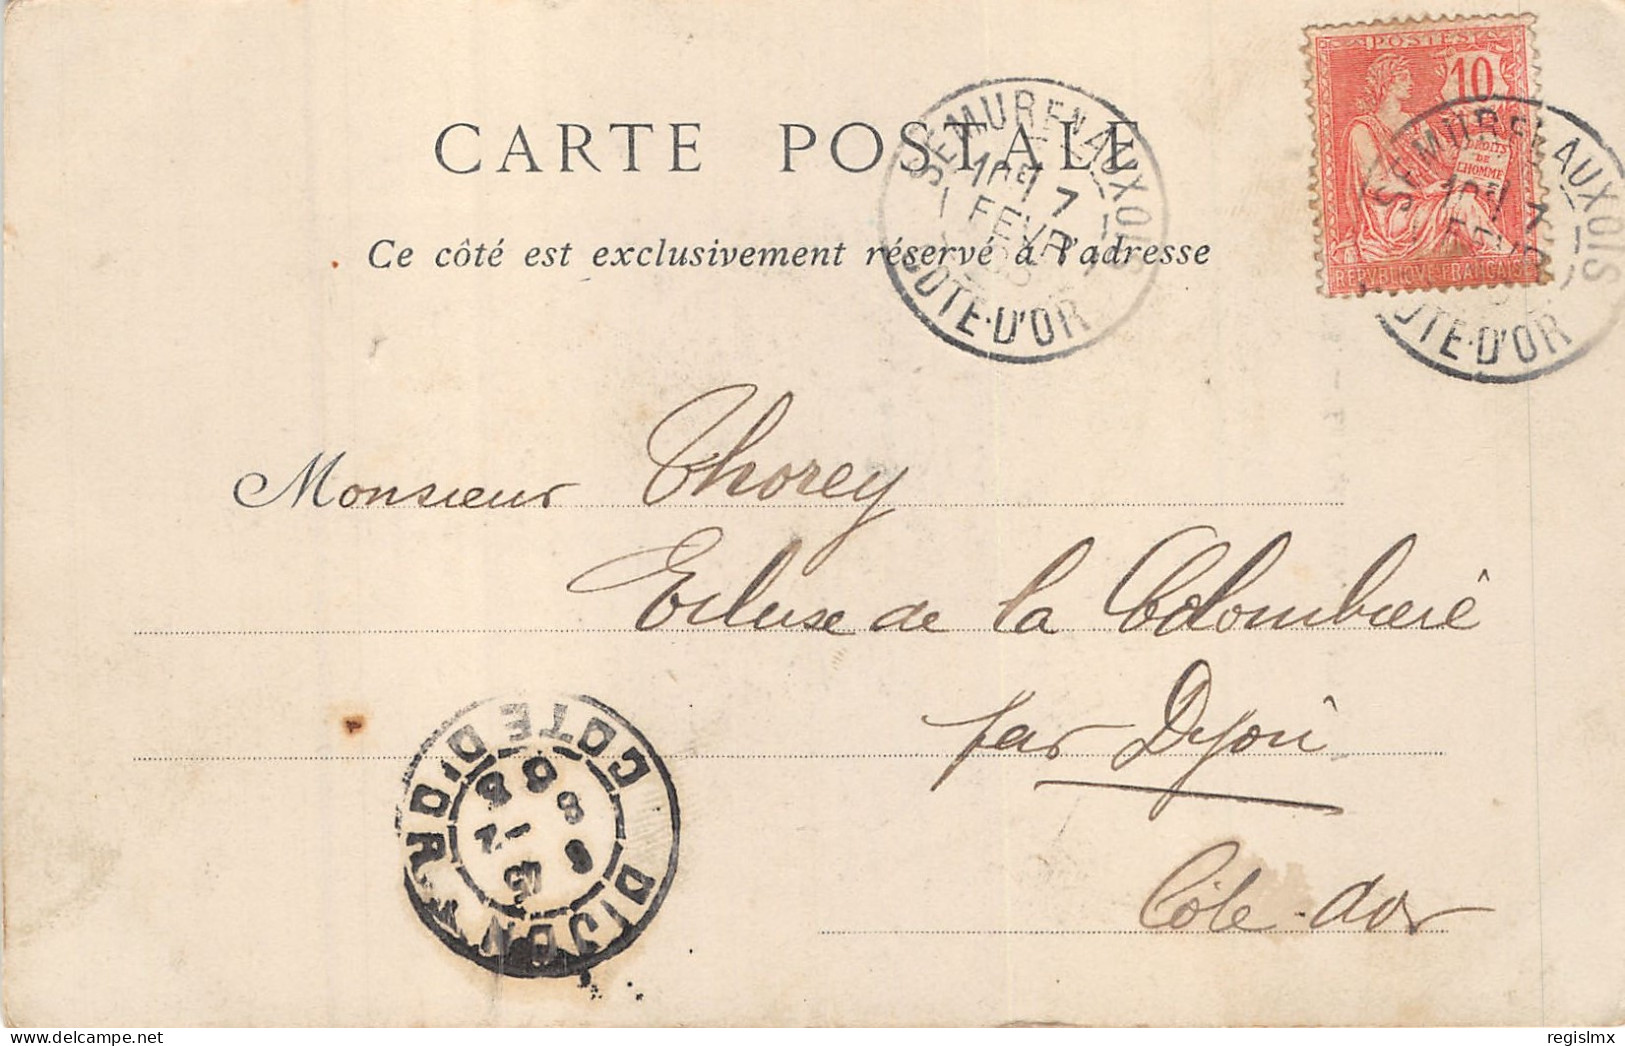 POSTES
10
DROITS
DE
L'HOMME
REPVBLIQVE FRANÇAISE
CARTE POSTALE
SEMUR EN AUXOIS
10E 7
FEVR
COTE-D'OR
SEMUR EN AUXOIS
7
COTE-D'OR
Ce côté est exclusivement réservé à l'adresse
Monsieur Thorey
Ecluse de la Colombière
par Dijon
Côte-d'Or
DIJON
COTE D'OR
delcampe.net
regislmx